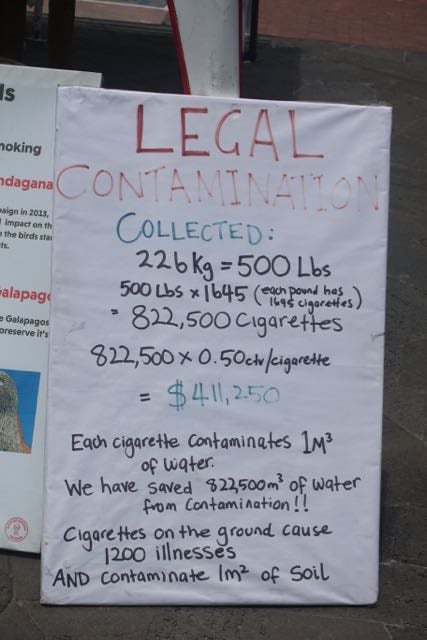 ls
moking
ndagana
aign in 2013,
impact on th
the birds sta
ts.
alapago
e Galapagos
reserve it's
LEGAL
CONTAMINATION
COLLECTED:
226kg = 500 Lbs
500 Lbs × 1645 (each pound has
1645 cigarettes)
= 822,500 Cigarettes
822,500 × 0.50ctv/cigarette
= $411,250
Each cigarette contaminates 1M³
of water.
We have saved 822,500m³ of water
from contamination!!
Cigarettes on the ground cause
1200 illnesses
AND contaminate 1m² of soil